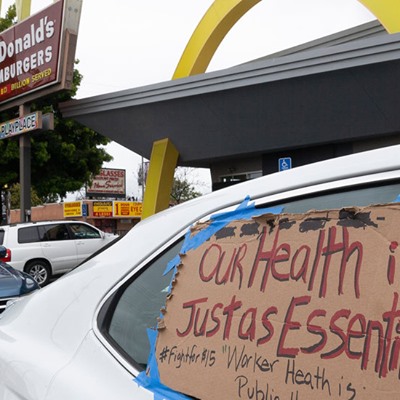 Donald's
HAMBURGERS
BILLION SERVED
PLAYPLACE
GLASSES
OUR Health i
Just as Essenti
#Fightfor$15 "Worker Heath is
Public H